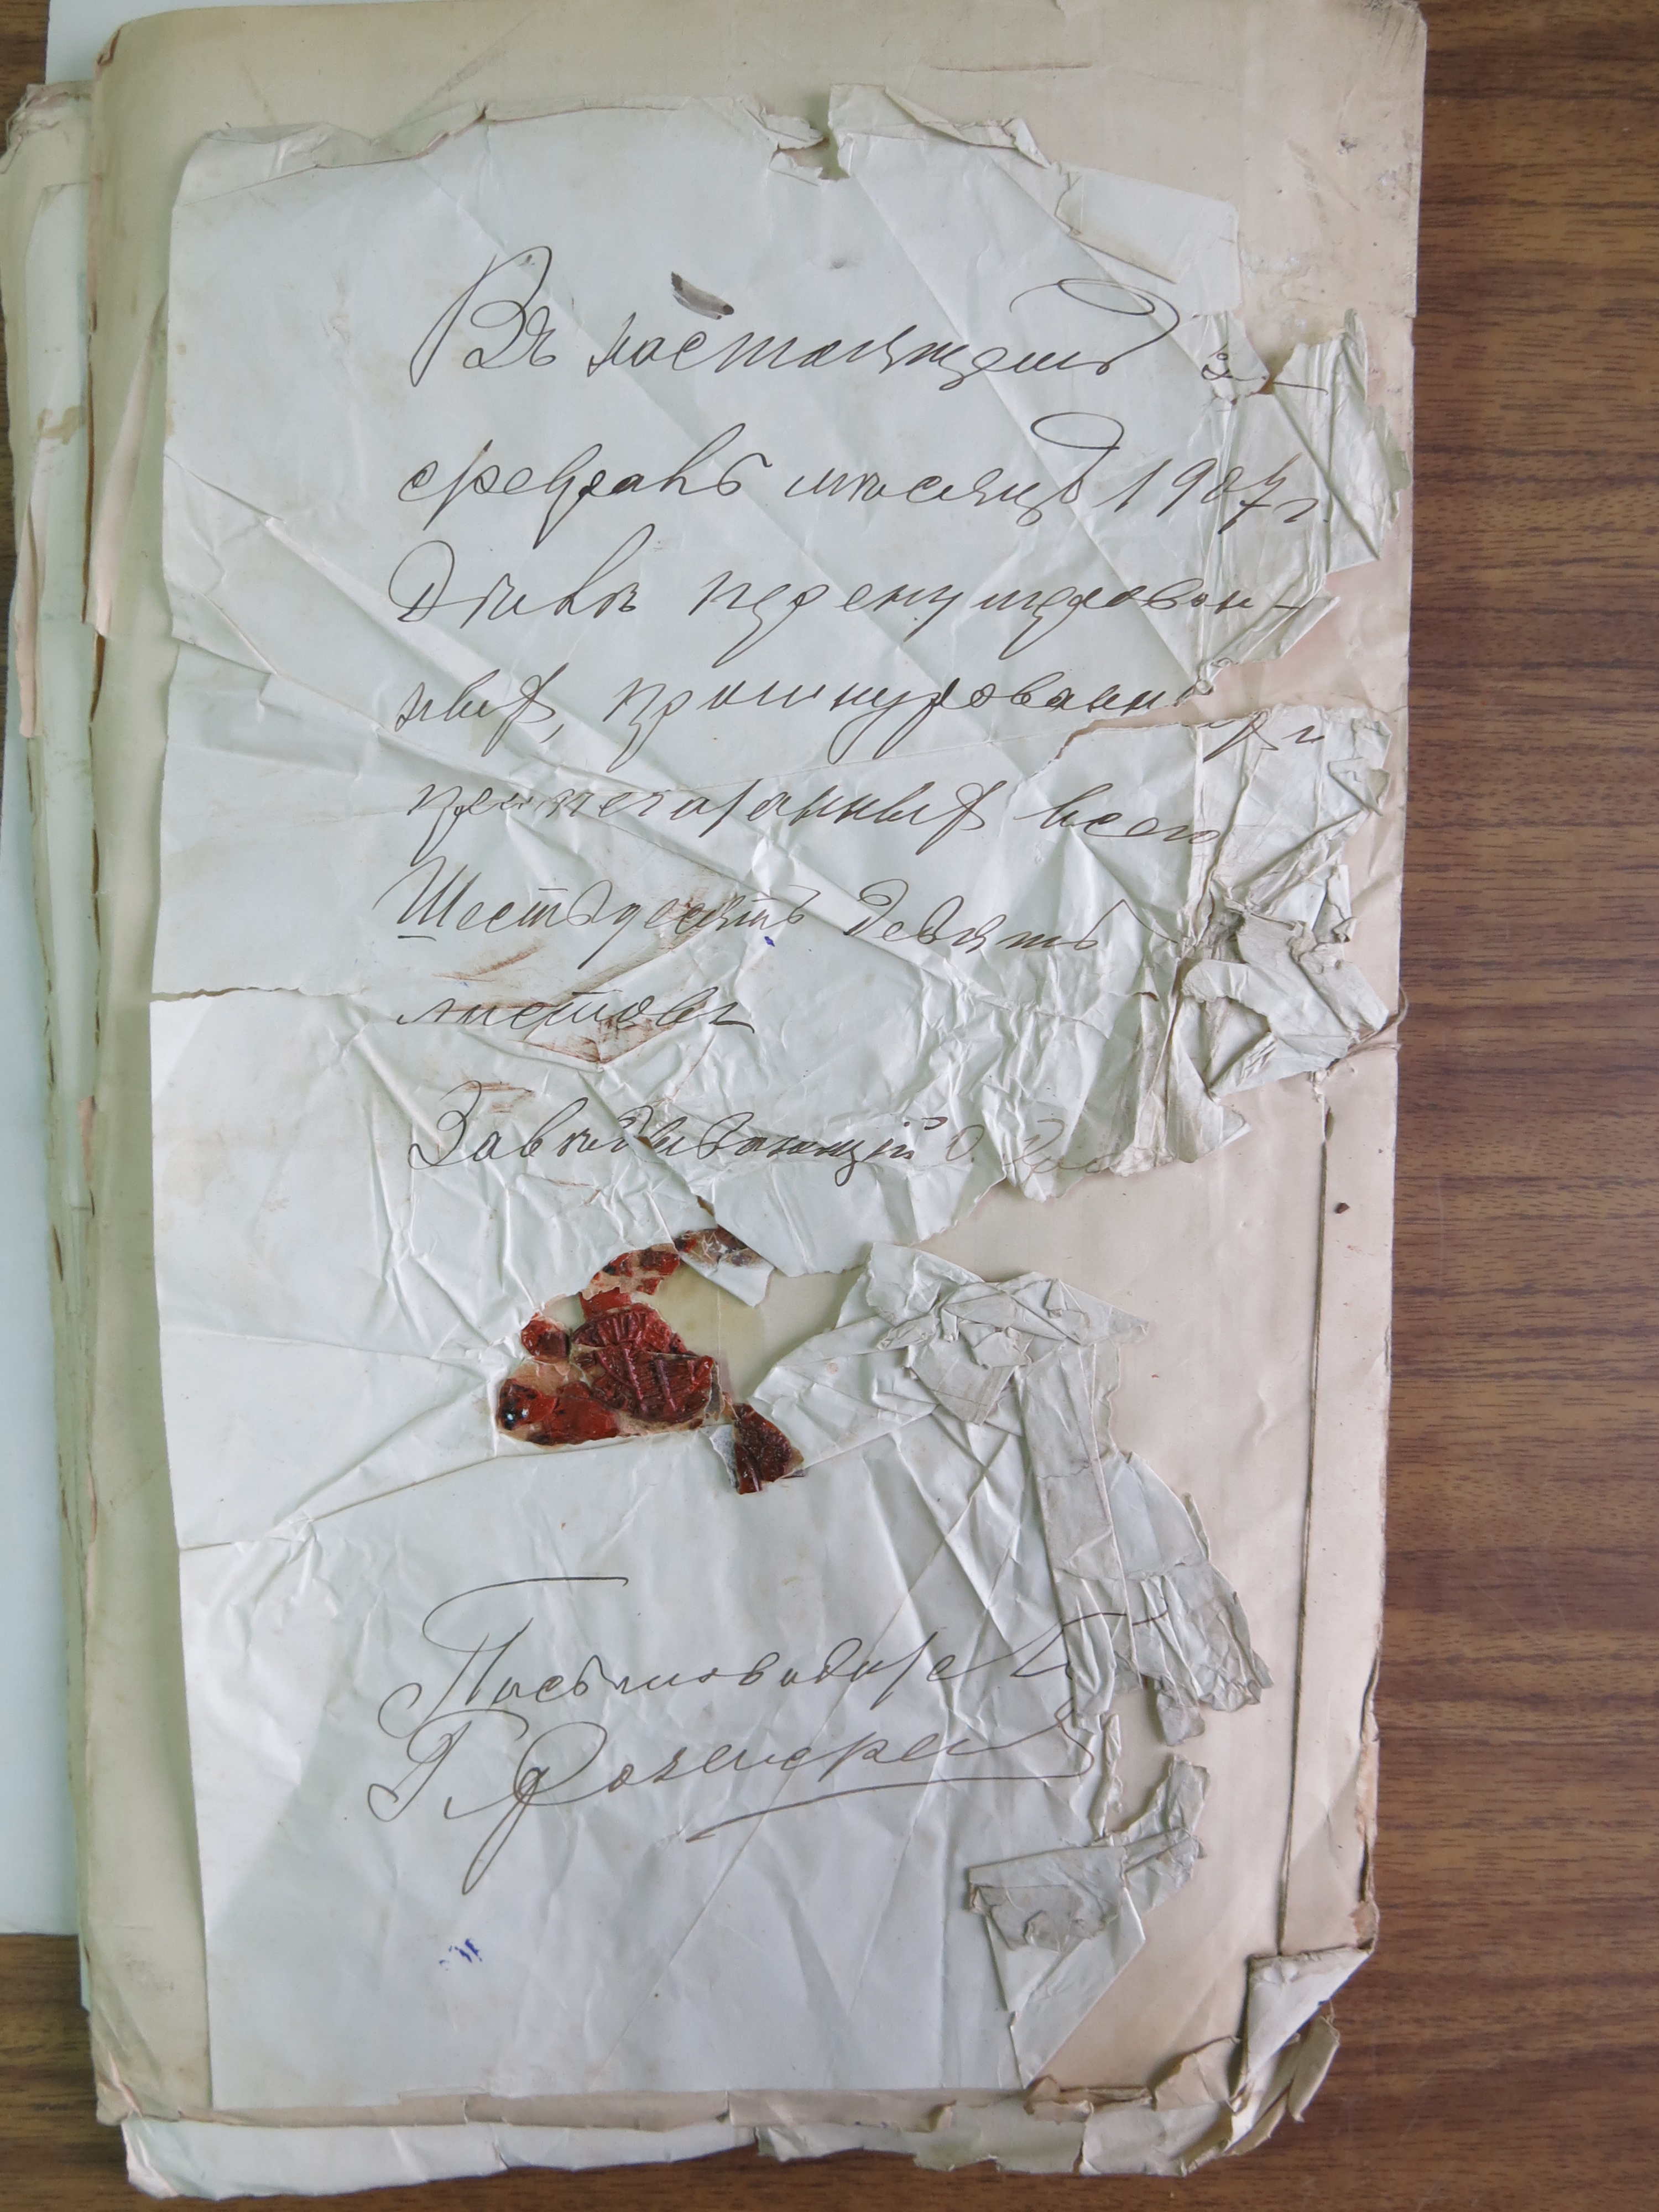 Въ настоящемъ за
февраль мѣсяцъ 1907 г.
Дѣлѣ перенумерован-
ныхъ, прошнурованныхъ и
припечатанныхъ всего
Шестьдесятъ девять
листовъ
Завѣдывающій О.
Письмоводитель
Г. Розенфельд